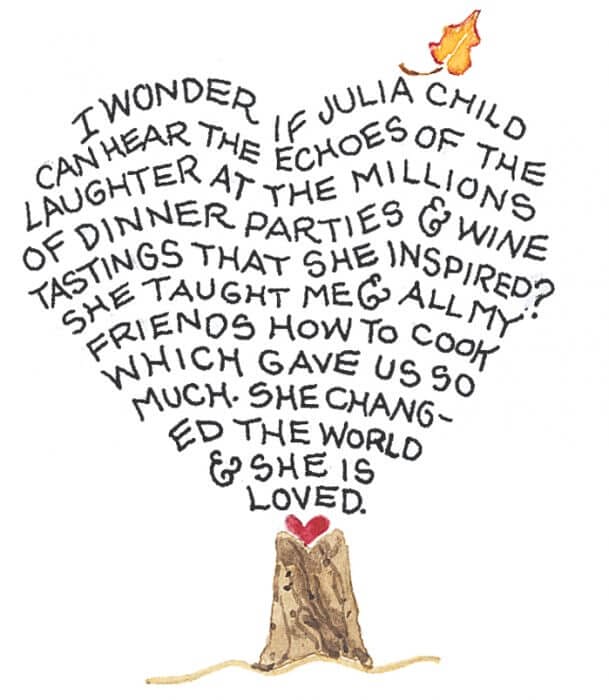 I WONDER IF JULIA CHILD
CAN HEAR THE ECHOES OF THE
LAUGHTER AT THE MILLIONS
OF DINNER PARTIES & WINE
TASTINGS THAT SHE INSPIRED?
SHE TAUGHT ME & ALL MY
FRIENDS HOW TO COOK
WHICH GAVE US SO
MUCH. SHE CHANG-
ED THE WORLD
& SHE IS
LOVED.